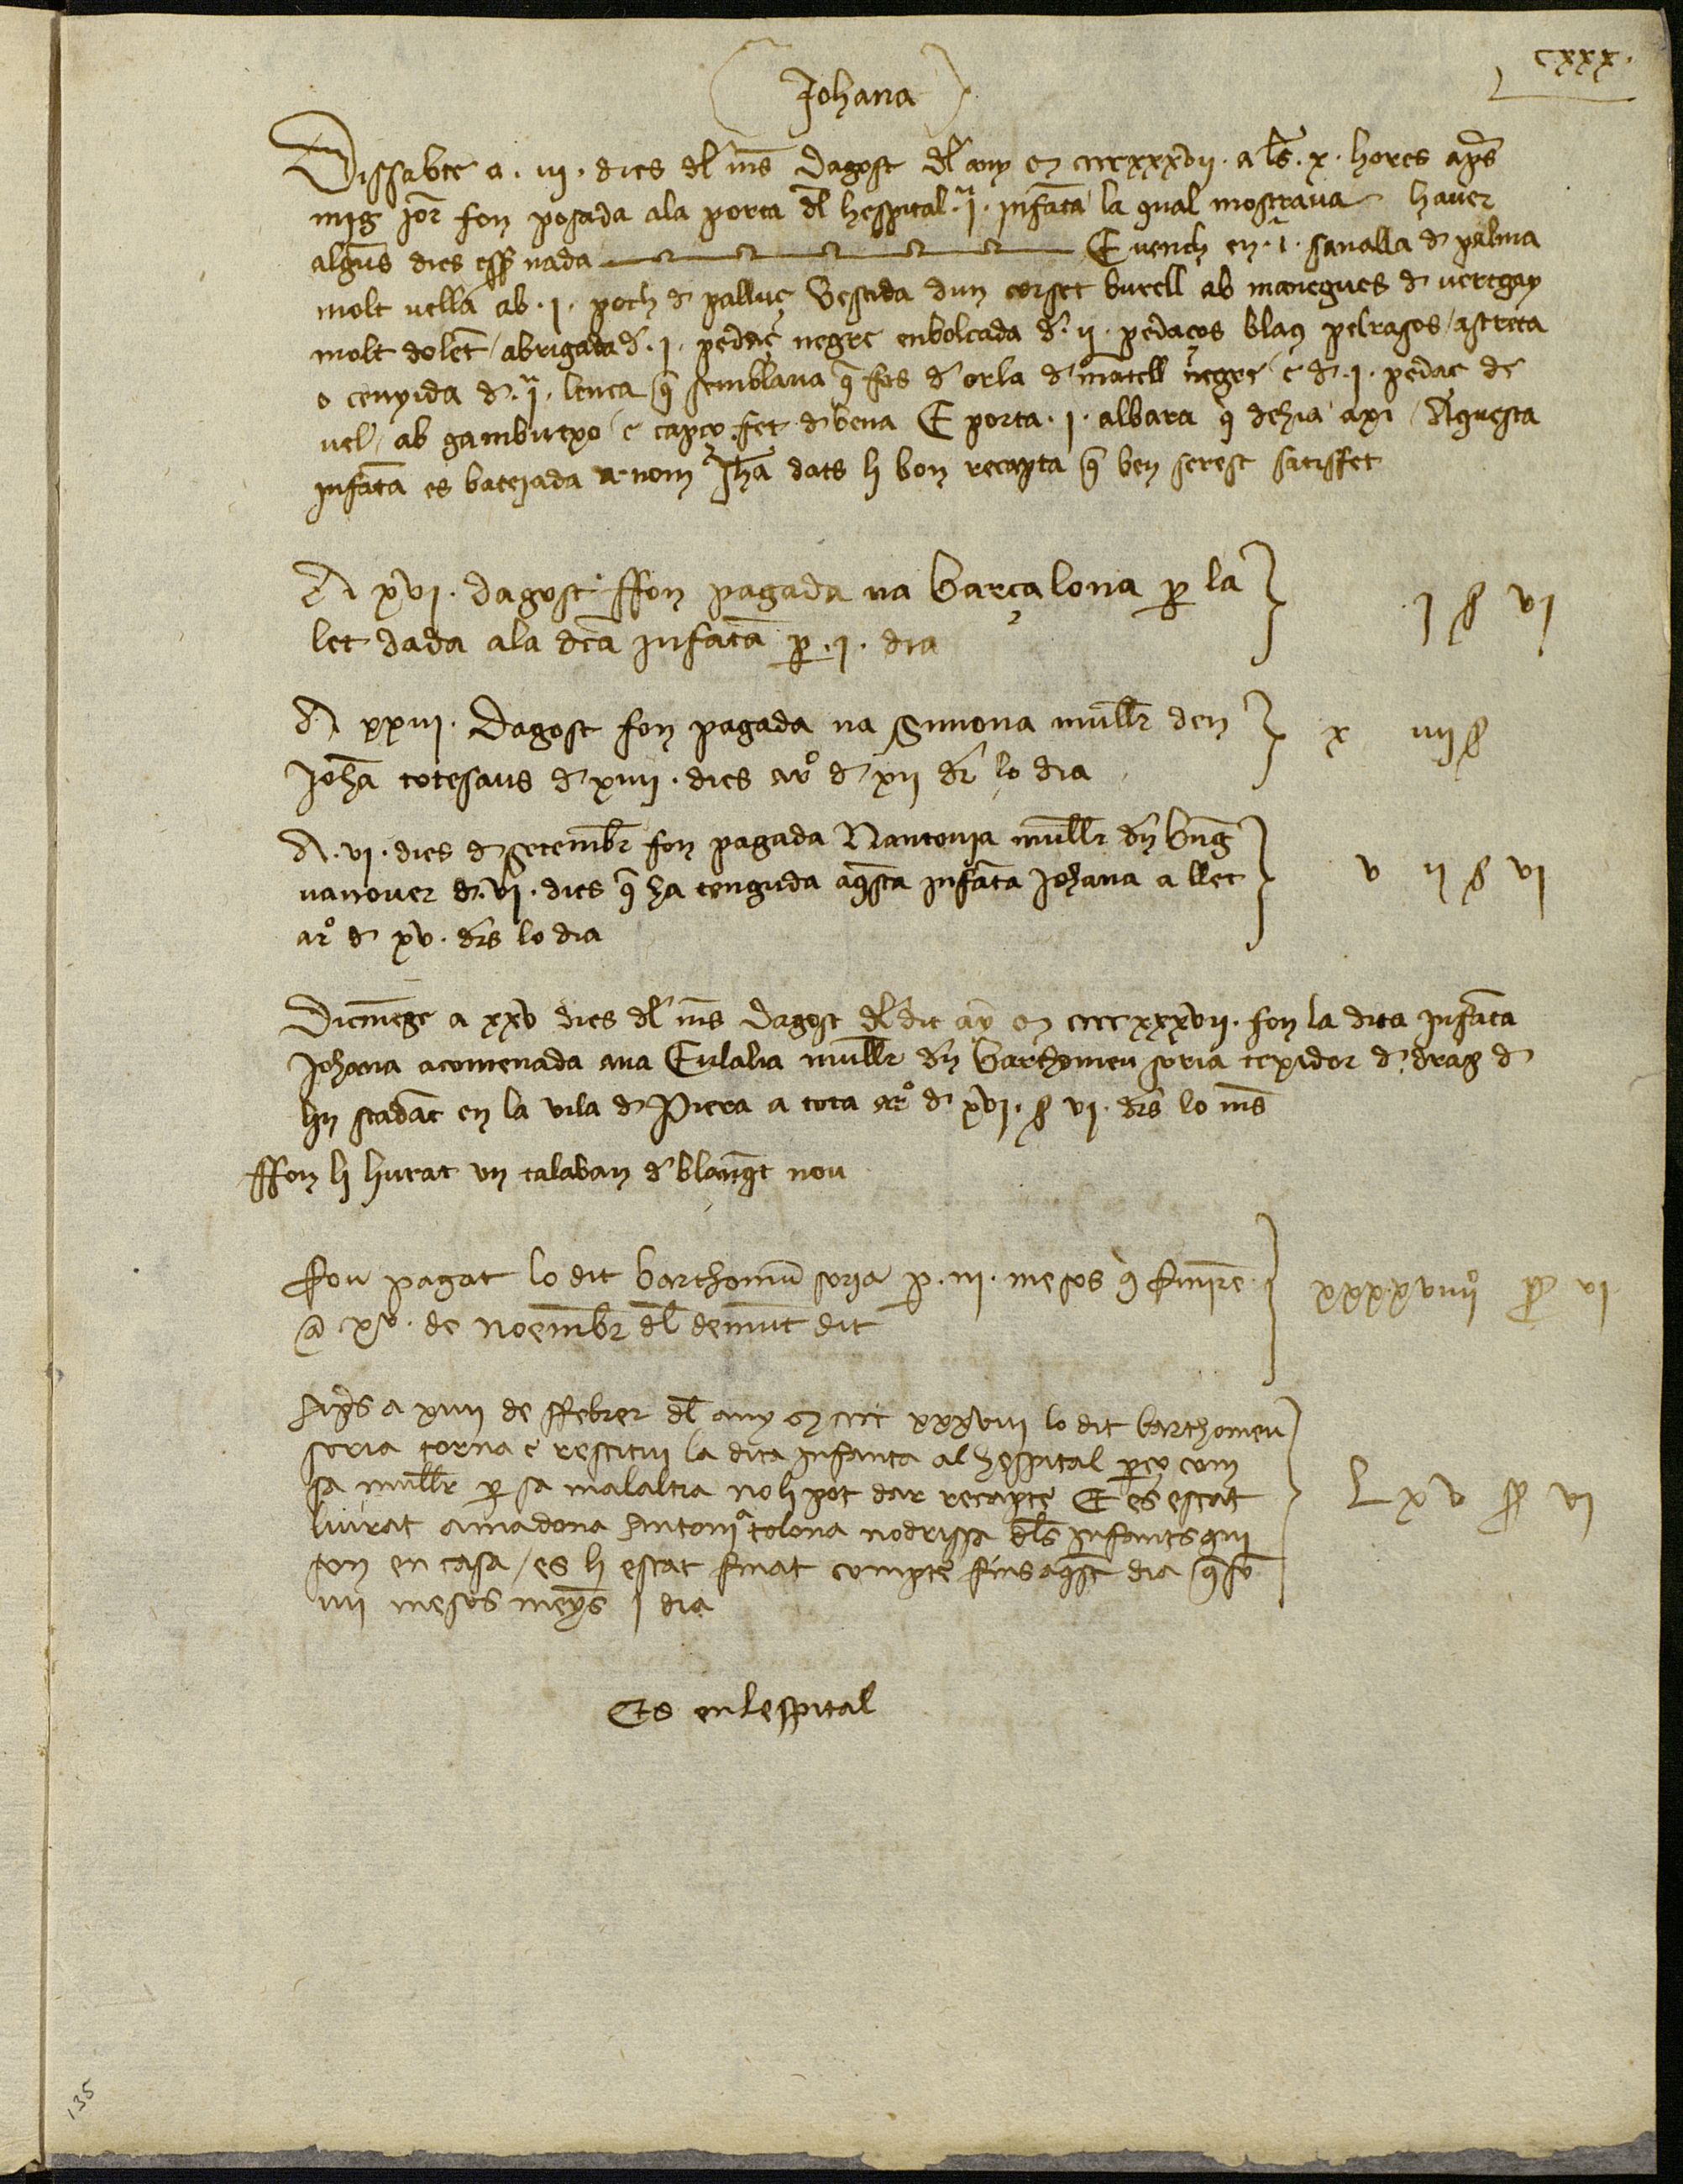 cxxx.
Johana
Dissabte a .iii. dies dl̃ mẽs dagost dl̃ any m cccc xxxvii. a lẽs .x. hores apr̃s
mig jor̃ fon posada ala porta dl̃ hespital .iª. infãta la qual mostraua hauer
algũs dies esser nada E vench en .iª. sanalla d palma
molt vella ab .i. poch d palluç vestida dun corset burell ab manegues d vertgay
molt dolẽt / abrigada d .i. pedaç negre enbolcada d .ii. pedaços blanc pelrasos / astreta
o cenyida d .iª. lenca q̃ semblaua q̃ fos d orla d mãtell negre e d .i. pedaç de
vel / ab gambutxo e capço fet d bena E porta .i. albara q̃ dehia axi / Aquesta
infãta es batejada a nom Jhã dats li bon recapta q̃ ben serest satisffet
A xvi. dagost ffon pagada na barçalona p la
let dada ala dc̃a infãta p .i. dia
i ß vi
A xxiii. dagost fon pagada na Simona mullr̃ den
Johã totesaus d xiiii. dies ar̊ d xii dr̃ lo dia
x iiii ß
A .vi. dies d Setembr̃ fon pagada Nantonia mullr̃ dñ bñg
vanouer d .vi. dies q̃ ha tenguda aq̃sta infãta Johana a llet
ar̊ d xv. dr̃s lo dia
v ii ß vi
Diemẽge a xxv dies dl̃ mẽs dagost dl̃ dit añy m cccc xxxvii. fon la dita infãta
Johana acomenada a na Eulalia mullr̃ dñ barthomeu soria texidor d drap d
lin stadãt en la vila d Piera a tota ar̊ d xvi. ß vi. dr̃s lo mẽs
ffon li liurat vn calaban d blanq̃t nou
Fou pagat lo dit barthomeũ soria p .iii. mesos q̃ finirẽ
a xv. de noembr̃ dl̃ demũt dit
xxxxviiii̊ ß vi
Apr̃s a xiiii de ffebrer dl̃ any m cccc xxxviii lo dit barthomeu
soria torna e restitui la dita infanta al hespital p̃ço com
sa mullr̃ p sa malaltia no li pot dar recapte E es estat
liurat a madona Antoniª colona nodrissa dl̃s infants qui
son en casa / es li estat finat compte fins aq̃st dia q̃ sõ
iiii mesos meỹs i dia
Lxv ß vi
Es en lespital
135